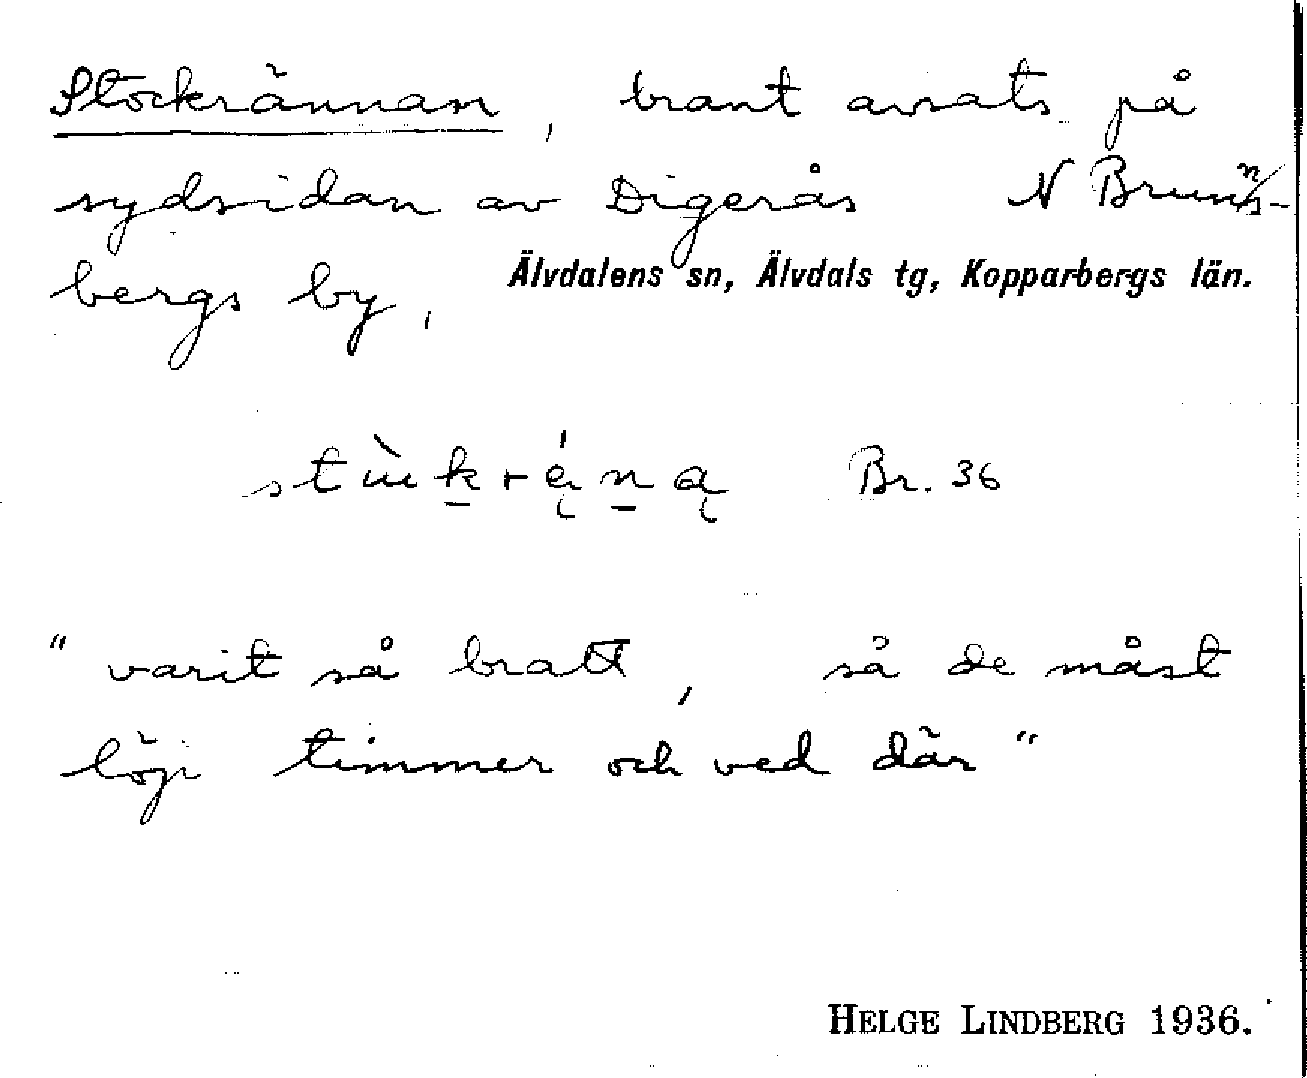 Stockrännan, brant avsats på
sydsidan av Digerås N Brunns-
bergs by, Älvdalens sn, Älvdals tg, Kopparbergs län.
Br. 36
" varit så bratt, så de måst
löp timmer och ved där "
HELGE LINDBERG 1936.